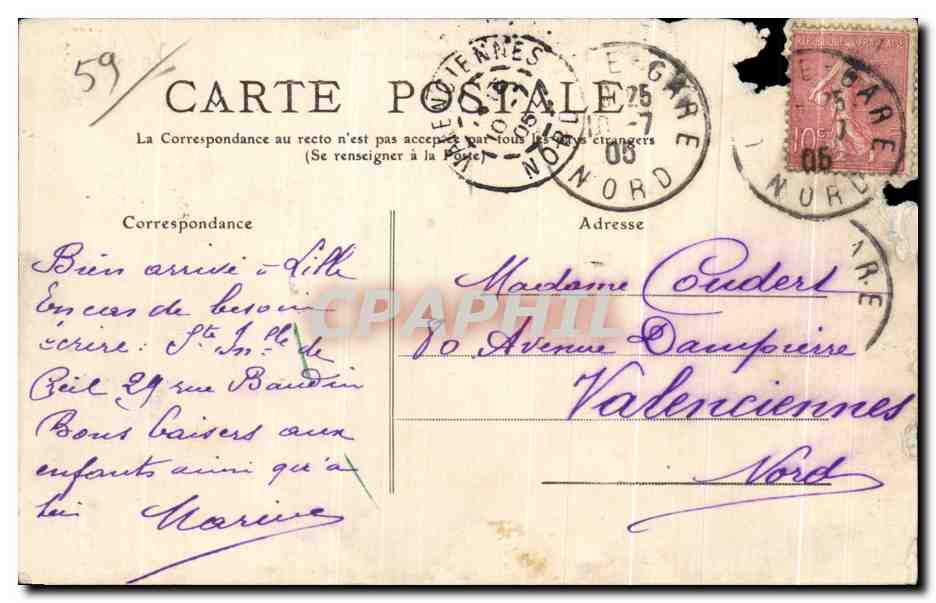 59
CARTE POSTALE
La Correspondance au recto n'est pas acceptée par tous les pays étrangers
(Se renseigner à la Poste)
VALENCIENNES
10
05
NORD
E-GARE
25
10 -7
05
NORD
REPUBLIQUE FRANÇAISE
10c
E-GARE
25
7
05
NORD
ARE
Correspondance
Bien arrivé à Lille
En cas de besoin
écrire: Ste Inlle de
Creil 29 rue Baudin
Bons baisers aux
enfants ainsi qu'à
toi Marine
Adresse
Madame Coudert
80 Avenue Dampierre
Valenciennes
Nord
CPAPHIL